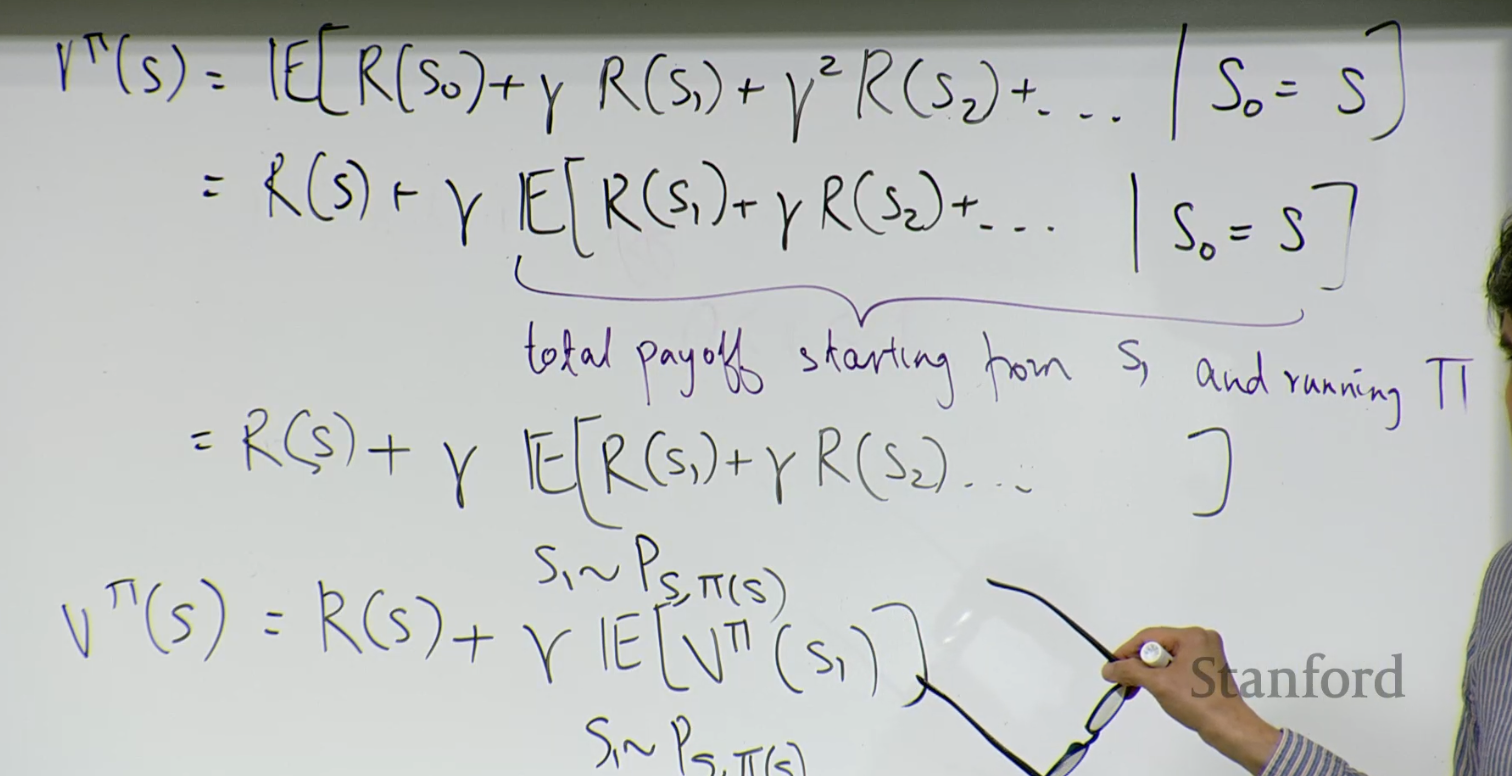 V^π(s) = 𝔼[R(s₀) + γ R(s₁) + γ² R(s₂) + ... | s₀ = s]
= R(s) + γ 𝔼[R(s₁) + γ R(s₂) + ... | s₀ = s]
total payoff starting from s₁ and running π
= R(s) + γ 𝔼[R(s₁) + γ R(s₂) ... ]
s₁ ~ P_{s,π(s)}
V^π(s) = R(s) + γ 𝔼[V^π(s₁)]
Stanford
s₁ ~ P_{s,π(s)}